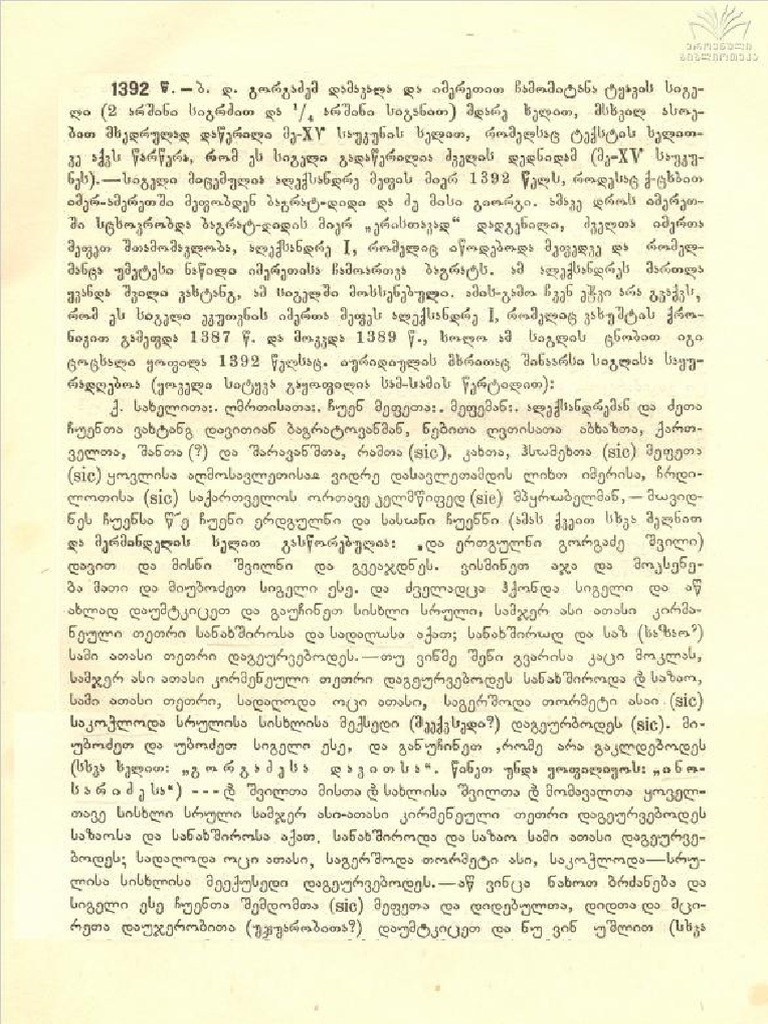 ეროვნული
ბიბლიოთეკა
1392 წ. — ბ. დ. გორგაძემ დამავალა და იმერეთით ჩამომიტანა ტყავის სიგე-
ლი (2 არშინი სიგრძით და 1/4 არშინი სიგანით) მდარე ხელით, მსხვილ ასოე-
ბით მხედრულად დაწერილი მე-XV საუკუნის ხელით, რომელსაც ტექსტის ხელით-
ვე აქვს წარწერა, რომ ეს სიგელი გადაწერილია ძველის დედნიდამ (მე-XV საუკუ-
ნეს). — სიგელი მიცემულია ალექსანდრე მეფის მიერ 1392 წელს, როდესაც ქ-ცხბით
იმერ-ამერეთში მეფობდენ ბაგრატ-დიდი და ძე მისი გიორგი. ამავე დროს იმერეთ-
ში სცხოვრობდა ბაგრატ-დიდის მიერ „ერისთავად“ დადგენილი, ძველთა იმერთა
მეფეთ შთამომავლობა, ალექსანდრე I, რომელიც იწოდებოდა მეფედვე და რომელ-
მანცა უმეტესი ნაწილი იმერეთისა ჩამოართვა ბაგრატს. ამ ალექსანდრეს მართლა
ყვანდა შვილი ვახტანგ, ამ სიგელში მოხსენებული. ამის-გამო ჩვენ ეჭვი არა გვაქვს,
რომ ეს სიგელი ეკუთვნის იმერთა მეფეს ალექსანდრე I, რომელიც ვახუშტის ქრო-
ნიკით გამეფდა 1387 წ. და მოკვდა 1389 წ., ხოლო ამ სიგლის ცნობით იგი
ცოცხალი ყოფილა 1392 წელსაც. იურიდიულის მხრითაც შინაარსი სიგლისა საყუ-
რადღებოა (ყოველი სიტყვა გაყოფილია სამ-სამის წერტილით):
ქ. სახელითა:. ღმრთისათა:. ჩუენ მეფეთა:. მეფემან:. ალექსანდრემან და ძეთა
ჩუენთა ვახტანგ დავითიან ბაგრატოვანმან, ნებითა ღვთისათა აბხაზთა, ქართ-
ველთა, შანთა (?) და შარავანშთა, რაშთა (sic), კახთა, ჰსომეხთა (sic) მეფეთა
(sic) ყოვლისა აღმოსავლეთისა ვიდრე დასავლეთამდის ლიხთ იმერისა, ჩრდი-
ლოთისა (sic) საქართველოს ორთავე კელმწიფედ (sic) მპყრობელმან, — მოვიდ-
ნეს ჩუენსა წ˜ე ჩუენი ერდგულნი და სასონი ჩუენნი (ამას ქვეით სხვა მელნით
და მერმანდელის ხელით გასწორებულია: „და ერთგულნი გორგაძე შვილი)
დავით და მისნი შვილნი და გვეაჯდნეს. ვისმინეთ აჯა და მოკსენე-
ბა მათი და მიუბოძეთ სიგელი ესე. და ძველადცა ჰქონდა სიგელი და აწ
ახლად დაუმტკიცეთ და გაუჩინეთ სისხლი სრული, სამჯერ ასი ათასი კირმა-
ნეული თეთრი სანახშიროსა და სადალოსა აქათ; სანახშიროდ და საზ (საზაო?)
სამი ათასი თეთრი დაგეურვებოდეს. — თუ ვინმე შენი გვარისა კაცი მოკლას,
სამჯერ ასი ათასი კირმენეული თეთრი დაგეურვებოდეს სანახშიროდა ⁊ საზაო,
სამი ათასი თეთრი, სადალოდა ოცი ათასი, საგერშოდა თორმეტი ასაი (sic)
საკოჭლოდა სრულისა სისხლისა მექსედი (მეექვსედი?) დაგეურბოდეს (sic). მი-
უბოძეთ და უბოძეთ სიგელი ესე, და განუჩინეთ ‚რომე არა გაკლდებოდეს
(სხვა ხელით: „გორგაძესა დავითსა“. წინეთ უნდა ყოფილიყოს: „ინო-
სარიძესა“) - - - ⁊ შვილთა მისთა ⁊ სახლისა შვილთა ⁊ მომავალთა ყოველ-
თავე სისხლი სრული სამჯერ ასი-ათასი კირმენეული თეთრი დაგეურვებოდეს
საზაოსა და სანახშიროსა აქათ, სანახშიროდა და საზაო სამი ათასი დაგეურვე-
ბოდეს; სადალოდა ოცი ათასი, საგერშოდა თორმეტი ასი, საკოჭლოდა — სრუ-
ლისა სისხლისა მეექუსედი დაგეურვებოდეს. — აწ ვინცა ნახოთ ბრძანება და
სიგელი ესე ჩუენთა შემდომთა (sic) მეფეთა და დიდებულთა, დიდთა და მცი-
რეთა დაუჯერობითა (უჯუარობითა?) დაუმტკიცეთ და ნუ ვინ უშლით (სხვა